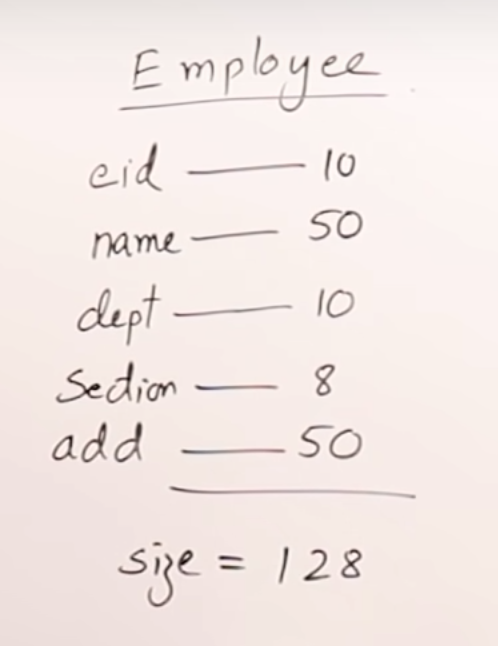 Employee
eid — 10
name — 50
dept — 10
Section — 8
add — 50
size = 128